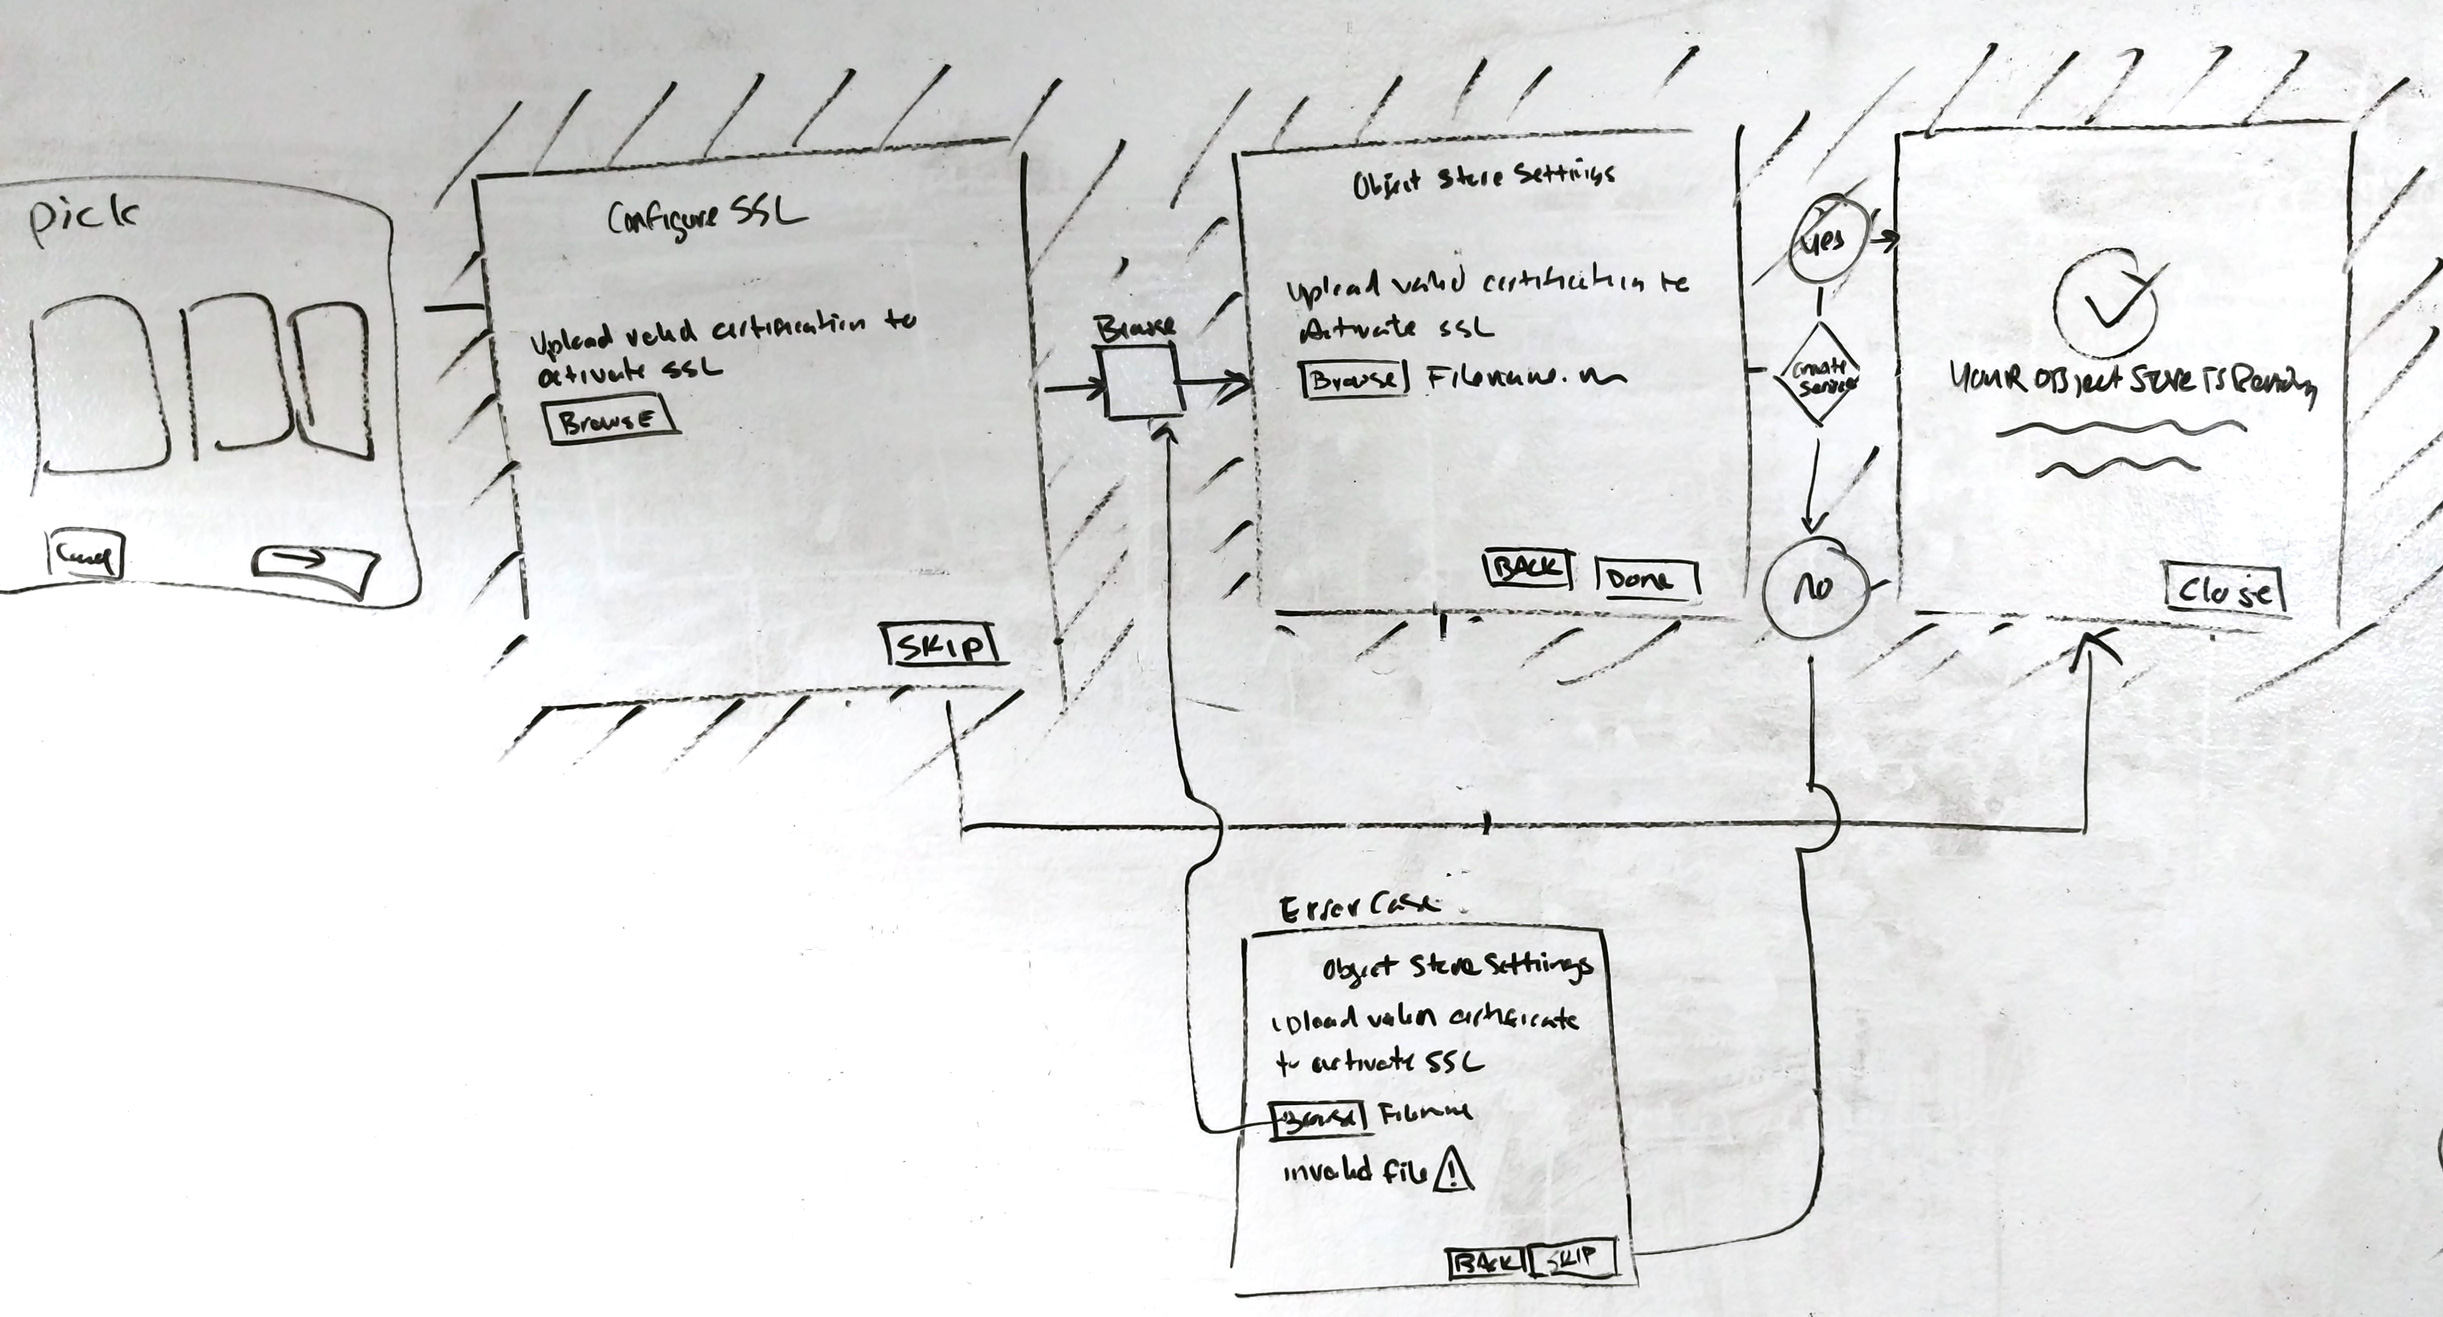 Pick
Cancel
Configure SSL
Upload valid certification to
activate SSL
Browse
SKIP
Browse
Object Store Settings
Upload valid certification to
Activate SSL
Browse Filename.
BACK Done
Yes
create
service
no
Your Object Store is Pending
Close
Error Case
Object Store Settings
Upload valid certificate
to activate SSL
Browse Filename
invalid file
BACK SKIP